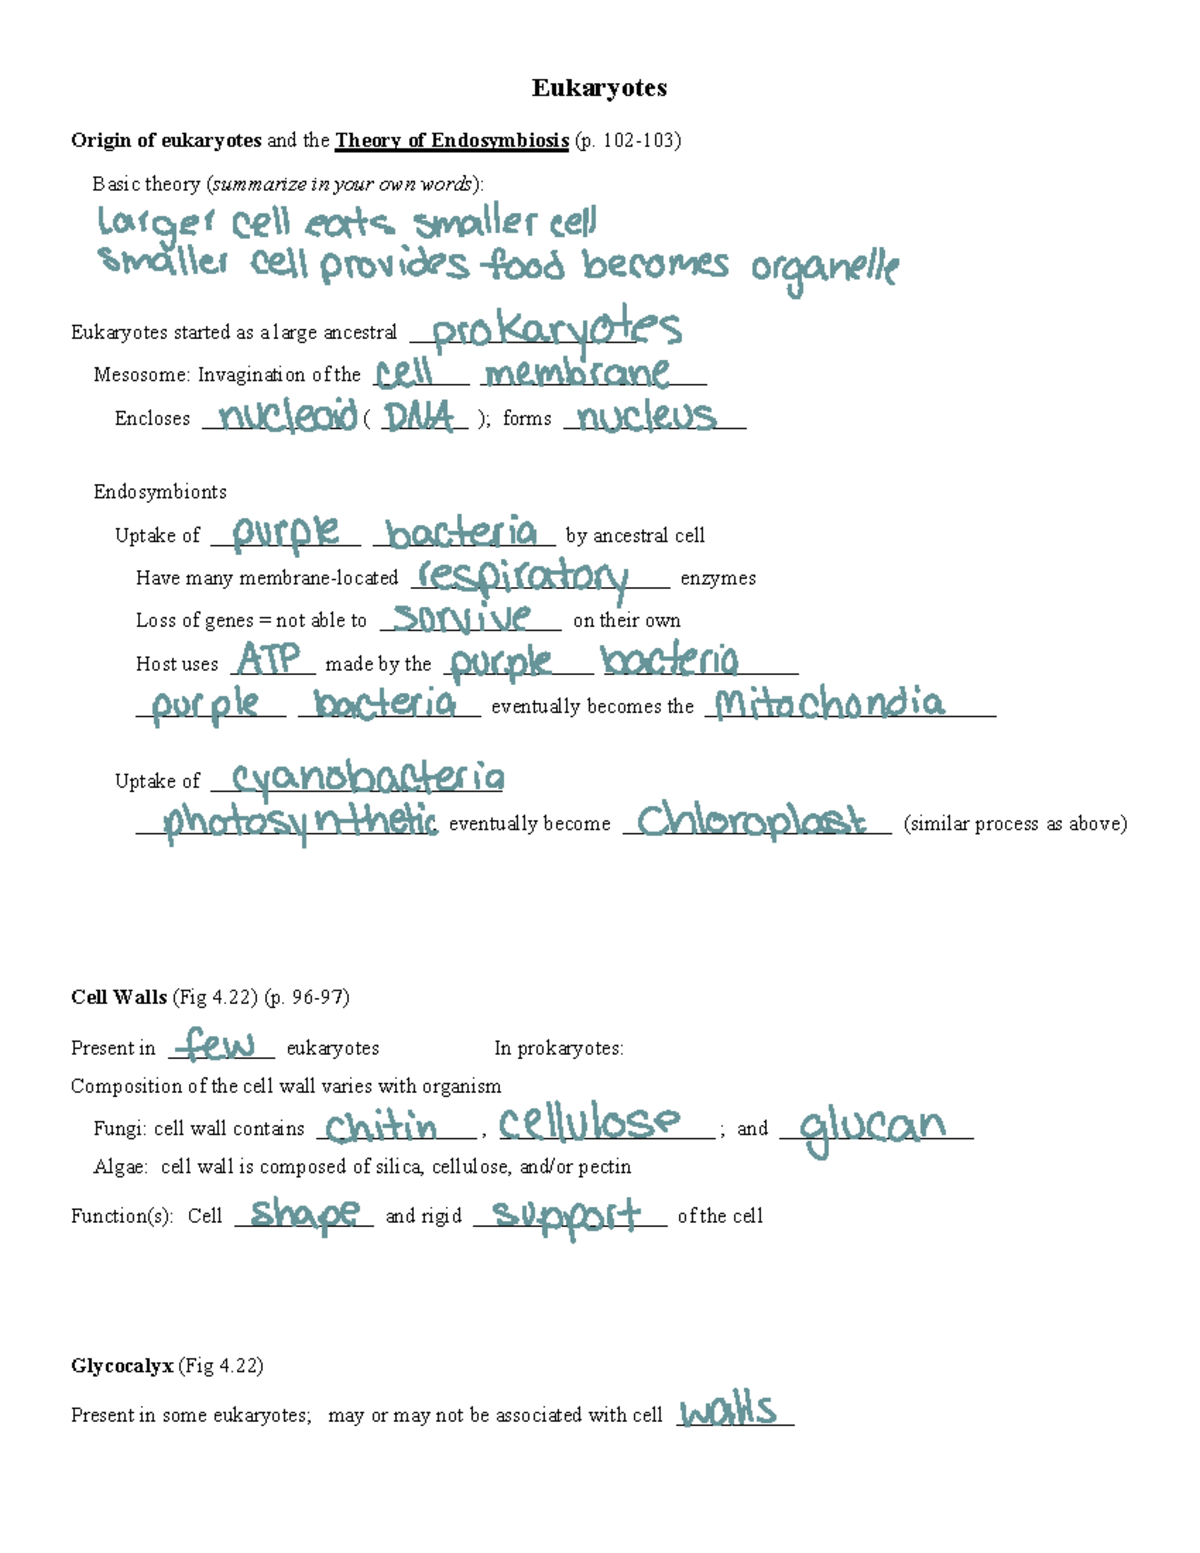 Eukaryotes
Origin of eukaryotes and the Theory of Endosymbiosis (p. 102-103)
Basic theory (summarize in your own words):
Larger cell eats smaller cell
Smaller cell provides food becomes organelle
Eukaryotes started as a large ancestral prokaryotes
Mesosome: Invagination of the cell membrane
Encloses nucleoid ( DNA ); forms nucleus
Endosymbionts
Uptake of purple bacteria by ancestral cell
Have many membrane-located respiratory enzymes
Loss of genes = not able to sorvive on their own
Host uses ATP made by the purple bacteria
purple bacteria eventually becomes the Mitochondia
Uptake of cyanobacteria
photosynthetic eventually become Chloroplast (similar process as above)
Cell Walls (Fig 4.22) (p. 96-97)
Present in few eukaryotes In prokaryotes:
Composition of the cell wall varies with organism
Fungi: cell wall contains chitin , cellulose ; and glucan
Algae: cell wall is composed of silica, cellulose, and/or pectin
Function(s): Cell shape and rigid support of the cell
Glycocalyx (Fig 4.22)
Present in some eukaryotes; may or may not be associated with cell walls